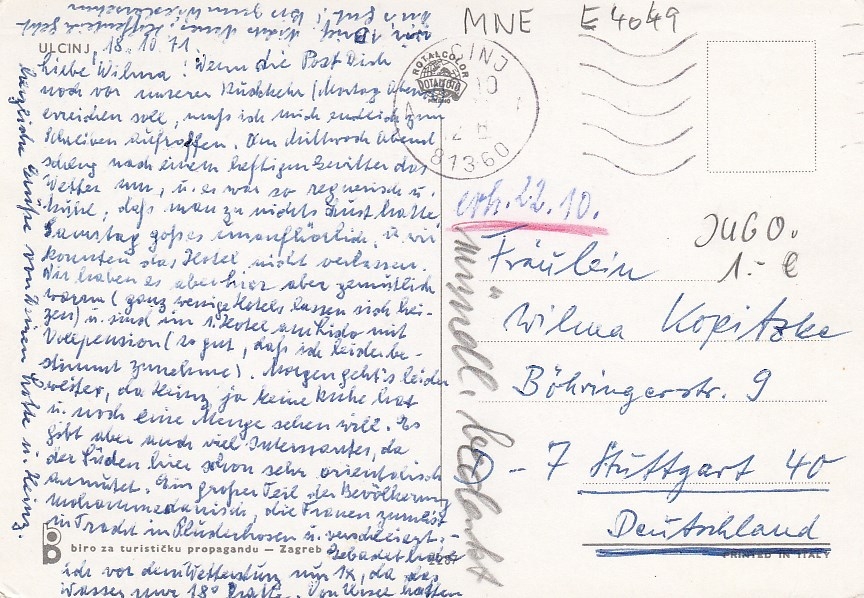 MNE E4049
ULCINJ, 18.10.71
Liebe Wilma! Wenn die Post Dich
noch vor unserer Rückkehr (Montag Abend)
erreichen soll, muß ich mich endlich zum
Schreiben aufraffen. Am Mittwoch Abend
schlug nach einem heftigen Gewitter das
Wetter um, u. es war so regnerisch u.
kühl, daß man zu nichts Lust hatte
Samstag goß es unaufhörlich, u. wir
konnten das Hotel nicht verlassen.
Wir haben es aber hier aber gemütlich
warm (ganz wenige Hotels lassen sich hei-
zen) u. sind im 1. Hotel am Lido mit
Vollpension (so gut, daß ich leider be-
stimmt zunehme). Morgen geht's leider
weiter, da Heinz ja keine Ruhe hat
u. noch eine Menge sehen will. Es
gibt aber auch viel Interessantes, da
der Süden hier schon sehr orientalisch
anmutet. Ein großer Teil der Bevölkerung
mohammedanisch, die Frauen zumeist
in Tracht in Pluderhosen u. verschleiert. -
Gebadet habe
ich vor dem Wettersturz nur 1x, da das
Wasser nur 18° hatte. Von Ursel hatten
herzliche Grüße von Deinen Lotte u. Heinz.
biro za turističku propagandu — Zagreb
PRINTED IN ITALY
ROTALCOLOR
ROTALFOTO
CINJ
10
12
81360
erh. 22.10.
mündl. bedankt
JUGO.
1.- €
Fräulein
Wilma Kopitzke
Böhringerstr. 9
D - 7 Stuttgart 40
Deutschland